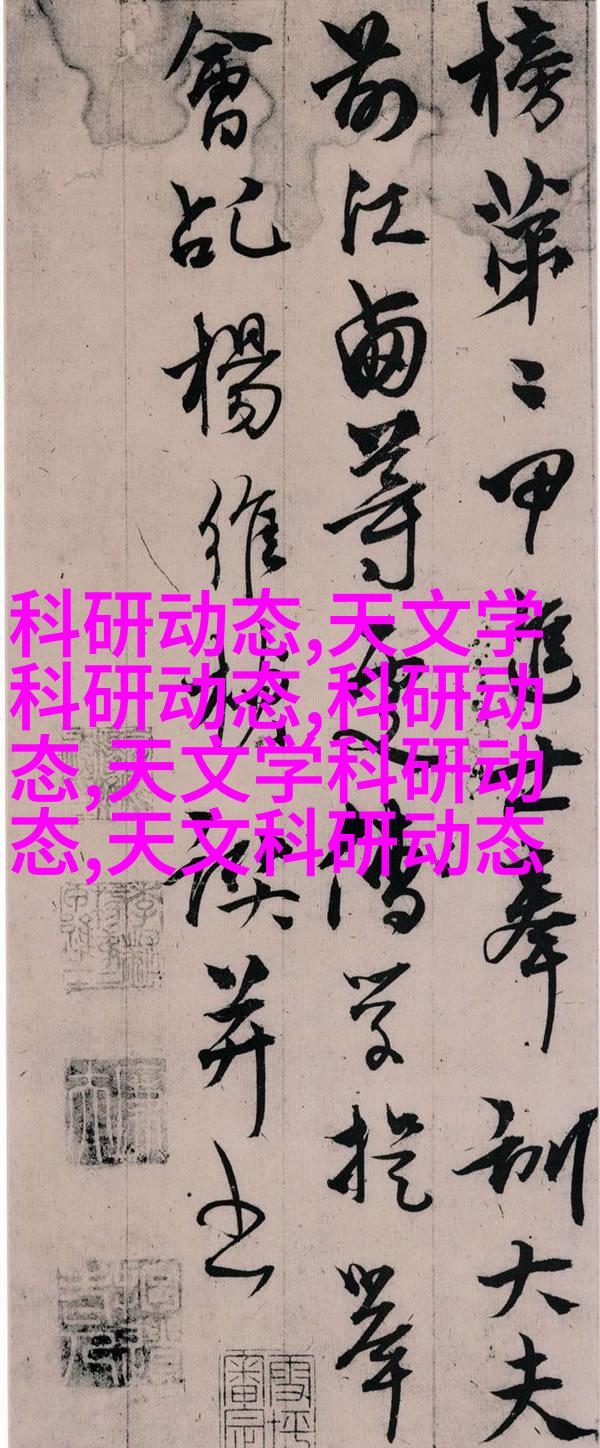 榜第二甲進士奉訓大夫
前江西等處儒學提舉
會稽楊維禎譔并書
科研动态,天文学
科研动态,科研动
态,天文学科研动
态,天文科研动态